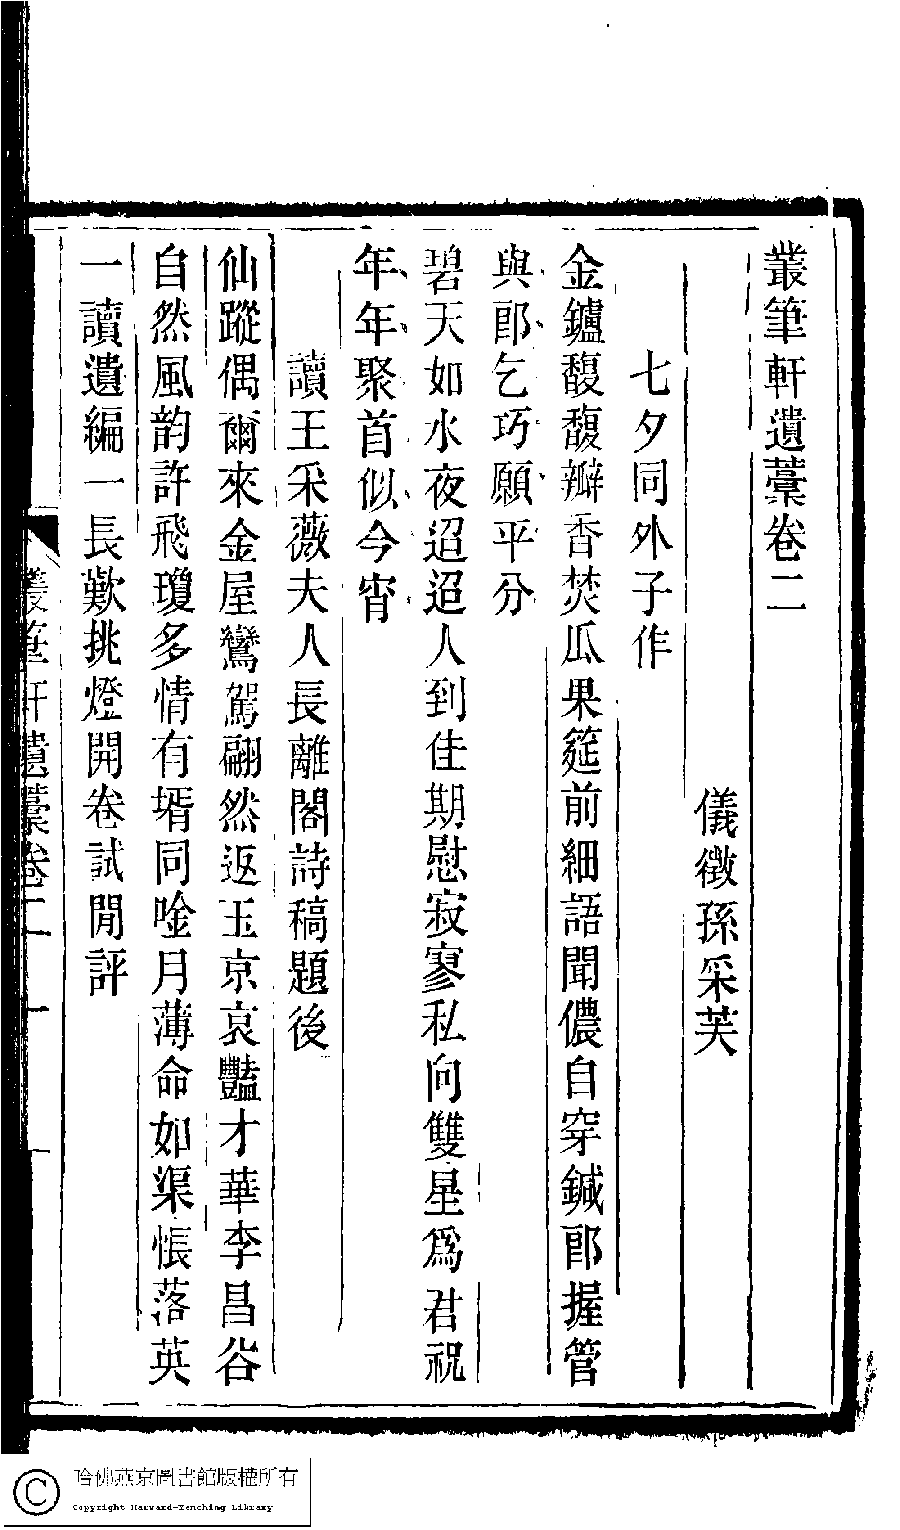 叢筆軒遺藁卷二
儀徵孫采芙
七夕同外子作
金鑪馥馥瓣香焚瓜果筵前細語聞儂自穿鍼郎握管
與郎乞巧願平分
碧天如水夜迢迢人到佳期慰寂寥私向雙星爲君祝
年年聚首似今宵
讀王采薇夫人長離閣詩稿題後
仙蹤偶爾來金屋鸞駕翩然返玉京哀豔才華李昌谷
自然風韵許飛瓊多情有壻同唫月薄命如渠悵落英
一讀遺編一長歎挑燈開卷試閒評
叢筆軒遺藁卷二 一
哈佛燕京圖書館版權所有
Copyright Harvard-Yenching Library